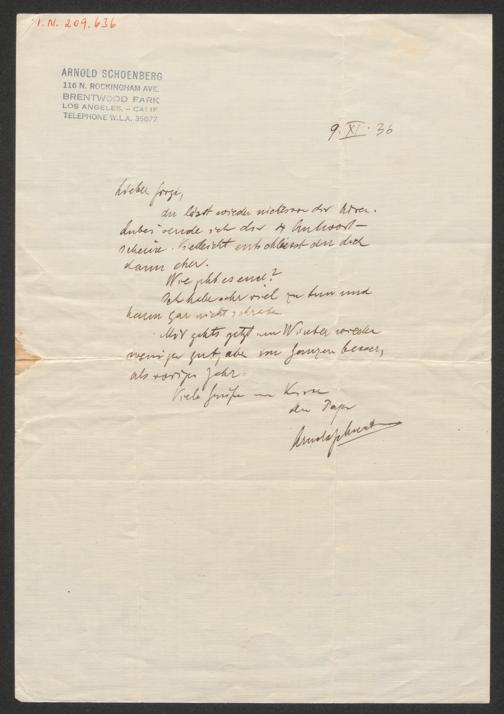 I.N. 209.636
ARNOLD SCHOENBERG
116 N. ROCKINGHAM AVE.
BRENTWOOD PARK
LOS ANGELES, – CALIF.
TELEPHONE W.L.A. 35077
9. XI. 36
Lieber Görgi,
du lässt wieder nichts von dir hören.
Anbei sende ich dir 4 Antwort-
scheine. Vielleicht entschliesst du dich
dann eher.
Wie geht es euch?
Ich habe sehr viel zu tun und
kann gar nicht schreiben
Mir gehts jetzt im Winter wieder
weniger gut, aber im Ganzen besser,
als voriges Jahr.
Viele Grüße und Küsse
dein Papa
Arnold Schoenberg